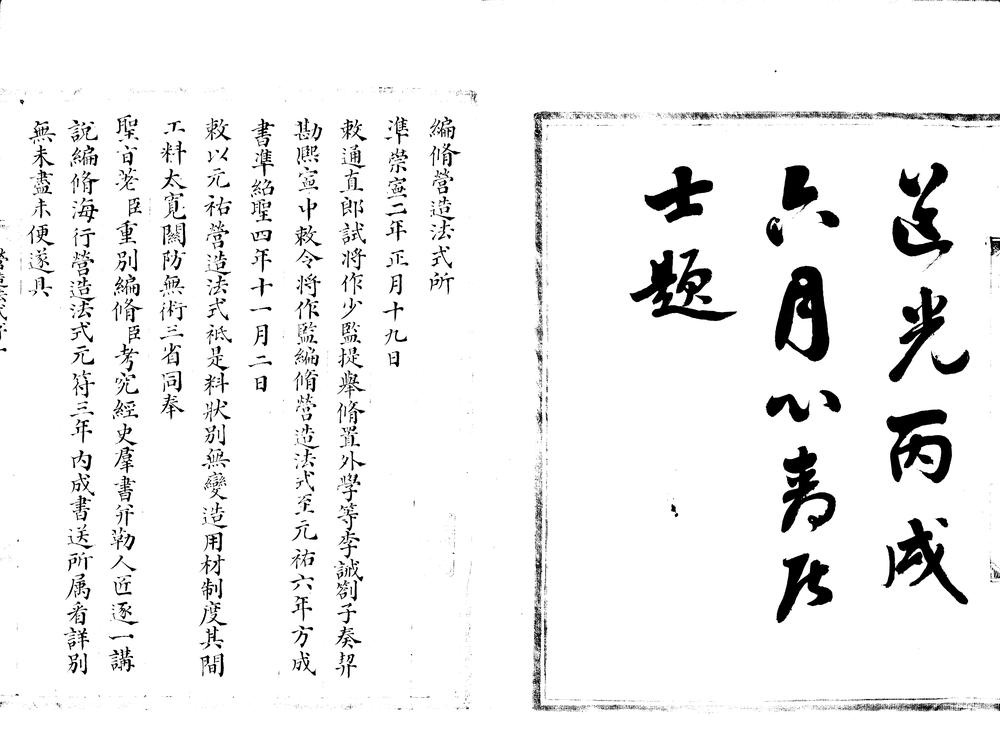 道光丙戌
六月心青居
士題
編脩營造法式所
準崇寧二年正月十九日
敕通直郎試將作少監提舉脩置外學等李誡劄子奏契
勘熙寧中敕令將作監編脩營造法式至元祐六年方成
書準紹聖四年十一月二日
敕以元祐營造法式祗是料狀別無變造用材制度其間
工料太寬關防無術三省同奉
聖旨差臣重別編脩臣考究經史羣書并勒人匠逐一講
說編脩海行營造法式元符三年內成書送所属看詳別
無未盡未便遂具